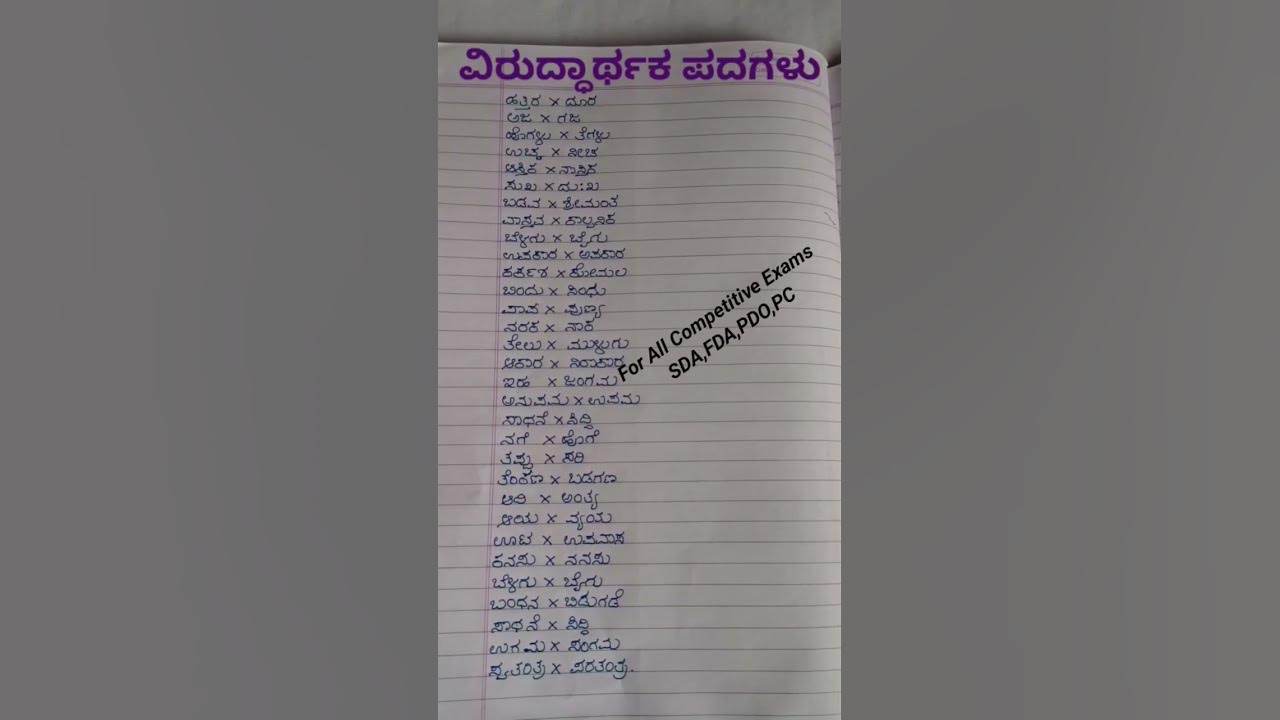 ವಿರುದ್ಧಾರ್ಥಕ ಪದಗಳು
ಹತ್ತಿರ × ದೂರ
ಅಜ × ಗಜ
ಹೊಗಳು × ತೆಗಳು
ಉಚ್ಚ × ನೀಚ
ಆಸ್ತಿಕ × ನಾಸ್ತಿಕ
ಸುಖ × ದು:ಖ
ಬಡವ × ಶ್ರೀಮಂತ
ವಾಸ್ತವ × ಕಾಲ್ಪನಿಕ
ಬೆಳಗು × ಬೈಗು
ಉಪಕಾರ × ಅಪಕಾರ
ಕರ್ಕಶ × ಕೋಮಲ
ಬಿಂದು × ಸಿಂಧು
ಪಾಪ × ಪುಣ್ಯ
ನರಕ × ನಾಕ
ತೇಲು × ಮುಳುಗು
ಆಕಾರ × ನಿರಾಕಾರ
ಇಹ × ಜಂಗಮ
ಅನುಪಮ × ಉಪಮ
ಸಾಧನೆ × ಸಿದ್ಧಿ
ನಗೆ × ಹೊಗೆ
ತಪ್ಪು × ಸರಿ
ತೆಂಕಣ × ಬಡಗಣ
ಆದಿ × ಅಂತ್ಯ
ಆಯ × ವ್ಯಯ
ಊಟ × ಉಪವಾಸ
ಕನಸು × ನನಸು
ಬೆಳಗು × ಬೈಗು
ಬಂಧನ × ಬಿಡುಗಡೆ
ಸಾಧನೆ × ಸಿದ್ಧಿ
ಉಗಮ × ಸಂಗಮ
ಸ್ವತಂತ್ರ × ಪರತಂತ್ರ.
For All Competitive Exams
SDA,FDA,PDO,PC